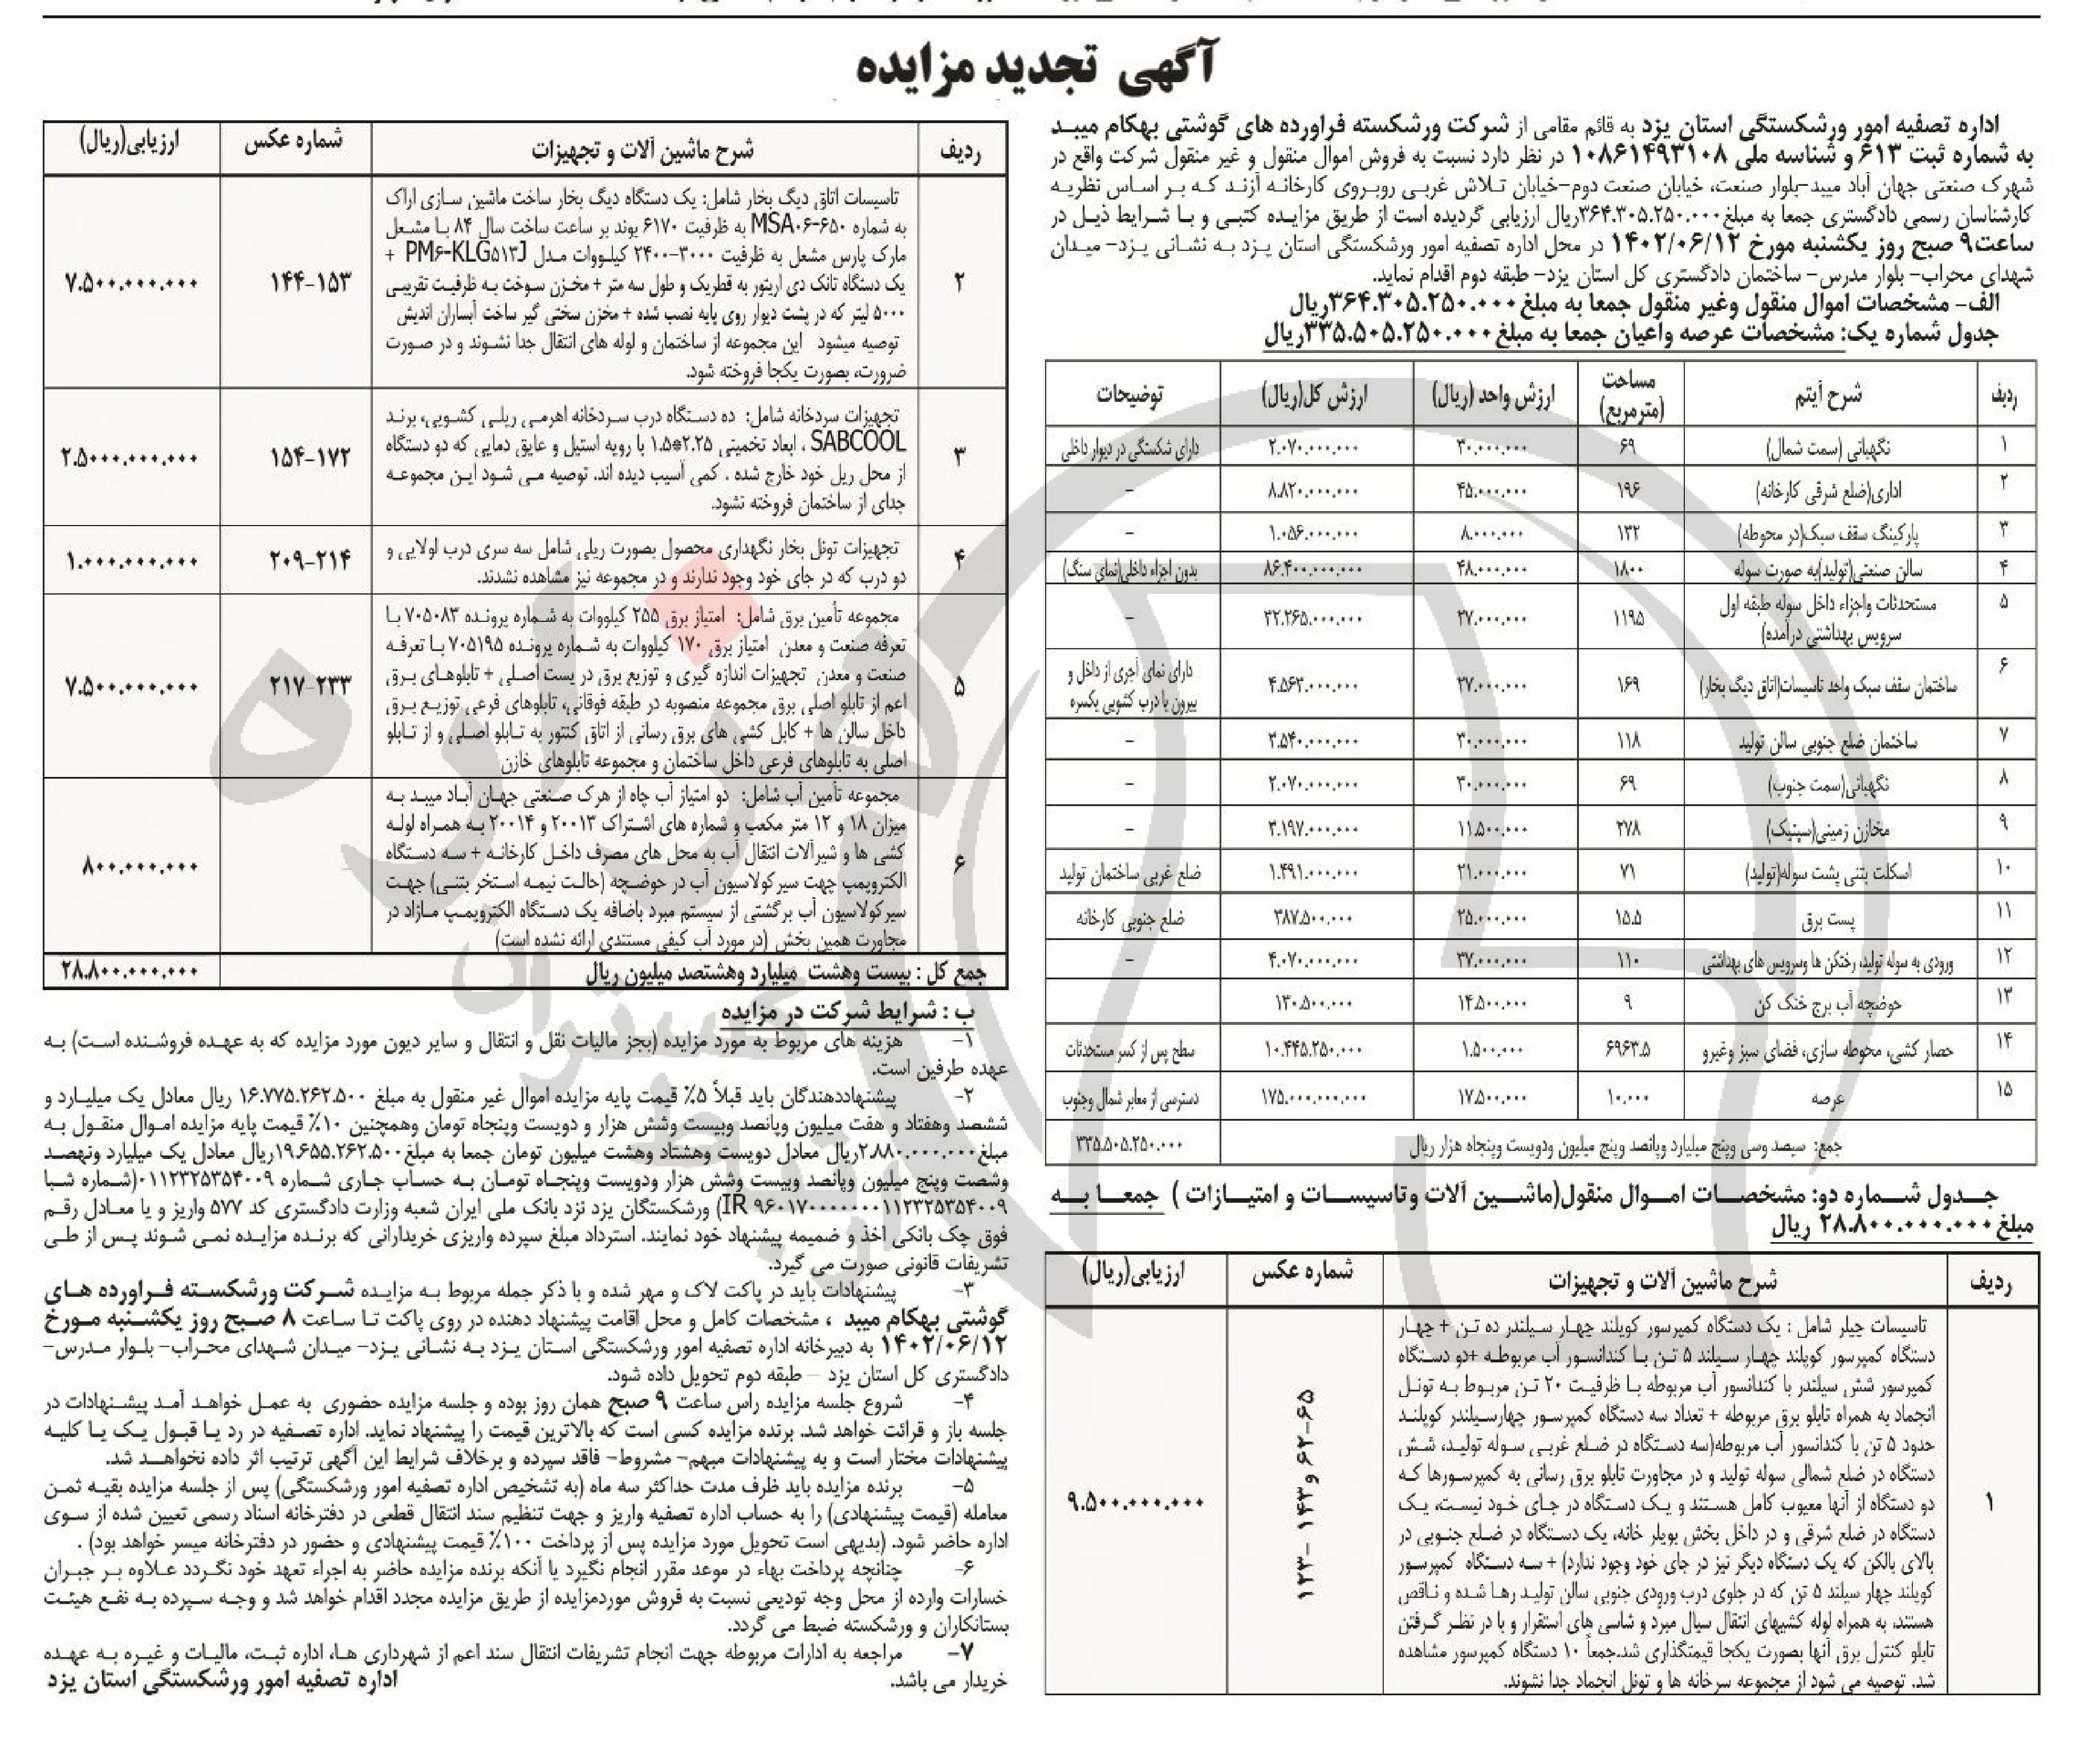 آگهی تجدید مزایده
اداره تصفیه امور ورشکستگی استان یزد به قائم مقامی از شرکت ورشکسته فراورده های گوشتی بهکام میبد
به شماره ثبت ۶۱۳ و شناسه ملی ۱۰۸۶۱۴۹۳۱۰۸ در نظر دارد نسبت به فروش اموال منقول و غیر منقول شرکت واقع در
شهرک صنعتی جهان آباد میبد-بلوار صنعت، خیابان صنعت دوم-خیابان تلاش غربی روبروی کارخانه آژند که بر اساس نظریه
کارشناسان رسمی دادگستری جمعا به مبلغ۳۶۴.۳۰۵.۲۵۰.۰۰۰ریال ارزیابی گردیده است از طریق مزایده کتبی و با شرایط ذیل در
ساعت۹ صبح روز یکشنبه مورخ ۱۴۰۲/۰۶/۱۲ در محل اداره تصفیه امور ورشکستگی استان یزد به نشانی یزد- میدان
شهدای محراب- بلوار مدرس- ساختمان دادگستری کل استان یزد- طبقه دوم اقدام نماید.
الف- مشخصات اموال منقول وغیر منقول جمعا به مبلغ۳۶۴.۳۰۵.۲۵۰.۰۰۰ریال
جدول شماره یک: مشخصات عرصه واعیان جمعا به مبلغ۳۳۵.۵۰۵.۲۵۰.۰۰۰ریال
ردیف شرح آیتم مساحت (مترمربع) ارزش واحد (ریال) ارزش کل(ریال) توضیحات
۱ نگهبانی (سمت شمال) ۶۹ ۳۰.۰۰۰.۰۰۰ ۲.۰۷۰.۰۰۰.۰۰۰ دارای شکستگی در دیوار داخلی
۲ اداری(ضلع شرقی کارخانه) ۱۹۶ ۴۵.۰۰۰.۰۰۰ ۸.۸۲۰.۰۰۰.۰۰۰ -
۳ پارکینگ سقف سبک(در محوطه) ۱۳۲ ۸.۰۰۰.۰۰۰ ۱.۰۵۶.۰۰۰.۰۰۰ -
۴ سالن صنعتی(تولید)به صورت سوله ۱۸۰۰ ۴۸.۰۰۰.۰۰۰ ۸۶.۴۰۰.۰۰۰.۰۰۰ بدون اجزاء داخلی(نمای سنگ)
۵ مستحدثات واجزاء داخل سوله طبقه اول
سرویس بهداشتی درآمده) ۱۱۹۵ ۲۷.۰۰۰.۰۰۰ ۳۲.۲۶۵.۰۰۰.۰۰۰ -
۶ ساختمان سقف سبک واحد تاسیسات(اتاق دیگ بخار) ۱۶۹ ۲۷.۰۰۰.۰۰۰ ۴.۵۶۳.۰۰۰.۰۰۰ دارای نمای آجری از داخل و
بیرون با درب کشویی یکسره
۷ ساختمان ضلع جنوبی سالن تولید ۱۱۸ ۳۰.۰۰۰.۰۰۰ ۳.۵۴۰.۰۰۰.۰۰۰ -
۸ نگهبانی(سمت جنوب) ۶۹ ۳۰.۰۰۰.۰۰۰ ۲.۰۷۰.۰۰۰.۰۰۰ -
۹ مخازن زمینی(سپتیک) ۲۷۸ ۱۱.۵۰۰.۰۰۰ ۳.۱۹۷.۰۰۰.۰۰۰ -
۱۰ اسکلت بتنی پشت سوله(تولید) ۷۱ ۲۱.۰۰۰.۰۰۰ ۱.۴۹۱.۰۰۰.۰۰۰ ضلع غربی ساختمان تولید
۱۱ پست برق ۱۵.۵ ۲۵.۰۰۰.۰۰۰ ۳۸۷.۵۰۰.۰۰۰ ضلع جنوبی کارخانه
۱۲ ورودی به سوله تولید، رختکن ها وسرویس های بهداشتی ۱۱۰ ۳۷.۰۰۰.۰۰۰ ۴.۰۷۰.۰۰۰.۰۰۰ -
۱۳ حوضچه آب برج خنک کن ۹ ۱۴.۵۰۰.۰۰۰ ۱۳۰.۵۰۰.۰۰۰
۱۴ حصار کشی، محوطه سازی، فضای سبز وغیرو ۶۹۶۳.۵ ۱.۵۰۰.۰۰۰ ۱۰.۴۴۵.۲۵۰.۰۰۰ سطح پس از کسر مستحدثات
۱۵ عرصه ۱۰.۰۰۰ ۱۷.۵۰۰.۰۰۰ ۱۷۵.۰۰۰.۰۰۰.۰۰۰ دسترسی از معابر شمال وجنوب
جمع: سیصد وسی وپنج میلیارد وپانصد وپنج میلیون ودویست وپنجاه هزار ریال ۳۳۵.۵۰۵.۲۵۰.۰۰۰
جدول شماره دو: مشخصات اموال منقول(ماشین آلات وتاسیسات و امتیازات ) جمعا به
مبلغ۲۸.۸۰۰.۰۰۰.۰۰۰ ریال
ردیف شرح ماشین آلات و تجهیزات شماره عکس ارزیابی(ریال)
۱ تاسیسات چیلر شامل : یک دستگاه کمپرسور کوپلند چهار سیلندر ده تن + چهار
دستگاه کمپرسور کوپلند چهار سیلند ۵ تن با کندانسور آب مربوطه +دو دستگاه
کمپرسور شش سیلندر با کندانسور آب مربوطه با ظرفیت ۲۰ تن مربوط به تونل
انجماد به همراه تابلو برق مربوطه + تعداد سه دستگاه کمپرسور چهارسیلندر کوپلند
حدود ۵ تن با کندانسور آب مربوطه(سه دستگاه در ضلع غربی سوله تولید، شش
دستگاه در ضلع شمالی سوله تولید و در مجاورت تابلو برق رسانی به کمپرسورها که
دو دستگاه از آنها معیوب کامل هستند و یک دستگاه در جای خود نیست، یک
دستگاه در ضلع شرقی و در داخل بخش بویلر خانه، یک دستگاه در ضلع جنوبی در
بالای بالکن که یک دستگاه دیگر نیز در جای خود وجود ندارد) + سه دستگاه کمپرسور
کوپلند چهار سیلند ۵ تن که در جلوی درب ورودی جنوبی سالن تولید رها شده و ناقص
هستند، به همراه لوله کشیهای انتقال سیال مبرد و شاسی های استقرار و با در نظر گرفتن
تابلو کنترل برق آنها بصورت یکجا قیمتگذاری شد.جمعاً ۱۰ دستگاه کمپرسور مشاهده
شد. توصیه می شود از مجموعه سرخانه ها و تونل انجماد جدا نشوند. ۶۲-۶۵ و ۱۴۳- ۱۲۳ ۹.۵۰۰.۰۰۰.۰۰۰
ردیف شرح ماشین آلات و تجهیزات شماره عکس ارزیابی(ریال)
۲ تاسیسات اتاق دیگ بخار شامل: یک دستگاه دیگ بخار ساخت ماشین سازی اراک
به شماره MSA۰۶-۶۵۰ به ظرفیت ۶۱۷۰ پوند بر ساعت ساخت سال ۸۴ با مشعل
مارک پارس مشعل به ظرفیت ۳۰۰۰-۲۴۰۰ کیلووات مدل PM۶-KLG۵۱۳J +
یک دستگاه تانک دی اریتور به قطریک و طول سه متر + مخزن سوخت به ظرفیت تقریبی
۵۰۰۰ لیتر که در پشت دیوار روی پایه نصب شده + مخزن سختی گیر ساخت آبساران اندیش
توصیه میشود این مجموعه از ساختمان و لوله های انتقال جدا نشوند و در صورت
ضرورت، بصورت یکجا فروخته شود. ۱۴۴-۱۵۳ ۷.۵۰۰.۰۰۰.۰۰۰
۳ تجهیزات سردخانه شامل: ده دستگاه درب سردخانه اهرمی ریلی کشویی، برند
SABCOOL ، ابعاد تخمینی ۲.۲۵*۱.۵ با رویه استیل و عایق دمایی که دو دستگاه
از محل ریل خود خارج شده . کمی آسیب دیده اند. توصیه می شود این مجموعه
جدای از ساختمان فروخته نشود. ۱۵۴-۱۷۲ ۲.۵۰۰۰.۰۰۰.۰۰۰
۴ تجهیزات تونل بخار نگهداری محصول بصورت ریلی شامل سه سری درب لولایی و
دو درب که در جای خود وجود ندارند و در مجموعه نیز مشاهده نشدند. ۲۰۹-۲۱۴ ۱.۰۰۰.۰۰۰.۰۰۰
۵ مجموعه تأمین برق شامل: امتیاز برق ۲۵۵ کیلووات به شماره پرونده ۷۰۵۰۸۳ با
تعرفه صنعت و معدن امتیاز برق ۱۷۰ کیلووات به شماره پرونده ۷۰۵۱۹۵ با تعرفه
صنعت و معدن تجهیزات اندازه گیری و توزیع برق در پست اصلی + تابلوهای برق
اعم از تابلو اصلی برق مجموعه منصوبه در طبقه فوقانی، تابلوهای فرعی توزیع برق
داخل سالن ها + کابل کشی های برق رسانی از اتاق کنتور به تابلو اصلی و از تابلو
اصلی به تابلوهای فرعی داخل ساختمان و مجموعه تابلوهای خازن ۲۱۷-۲۳۳ ۷.۵۰۰.۰۰۰.۰۰۰
۶ مجموعه تأمین آب شامل: دو امتیاز آب چاه از هرک صنعتی جهان آباد میبد به
میزان ۱۸ و ۱۲ متر مکعب و شماره های اشتراک ۲۰۰۱۳ و ۲۰۰۱۴ به همراه لوله
کشی ها و شیرآلات انتقال آب به محل های مصرف داخل کارخانه + سه دستگاه
الکتروپمپ جهت سیرکولاسیون آب در حوضچه (حالت نیمه استخر بتنی) جهت
سیرکولاسیون آب برگشتی از سیستم مبرد باضافه یک دستگاه الکتروپمپ مازاد در
مجاورت همین بخش (در مورد آب کیفی مستندی ارائه نشده است) ۸۰۰.۰۰۰.۰۰۰
جمع کل : بیست وهشت میلیارد وهشتصد میلیون ریال ۲۸.۸۰۰.۰۰۰.۰۰۰
ب : شرایط شرکت در مزایده
۱- هزینه های مربوط به مورد مزایده (بجز مالیات نقل و انتقال و سایر دیون مورد مزایده که به عهده فروشنده است) به
عهده طرفین است.
۲- پیشنهاددهندگان باید قبلاً ۵٪ قیمت پایه مزایده اموال غیر منقول به مبلغ ۱۶.۷۷۵.۲۶۲.۵۰۰ ریال معادل یک میلیارد و
ششصد وهفتاد و هفت میلیون وپانصد وبیست وشش هزار و دویست وپنجاه تومان وهمچنین ۱۰٪ قیمت پایه مزایده اموال منقول به
مبلغ۲.۸۸۰.۰۰۰.۰۰۰ریال معادل دویست وهشتاد وهشت میلیون تومان جمعا به مبلغ۱۹.۶۵۵.۲۶۲.۵۰۰ریال معادل یک میلیارد ونهصد
وشصت وپنج میلیون وپانصد وبیست وشش هزار ودویست وپنجاه تومان به حساب جاری شماره ۰۱۱۲۳۲۵۳۵۴۰۰۹(شماره شبا
IR ۹۶۰۱۷۰۰۰۰۰۰۰۱۱۲۳۲۵۳۵۴۰۰۹) ورشکستگان یزد نزد بانک ملی ایران شعبه وزارت دادگستری کد ۵۷۷ واریز و یا معادل رقم
فوق چک بانکی اخذ و ضمیمه پیشنهاد خود نمایند. استرداد مبلغ سپرده واریزی خریدارانی که برنده مزایده نمی شوند پس از طی
تشریفات قانونی صورت می گیرد.
۳- پیشنهادات باید در پاکت لاک و مهر شده و با ذکر جمله مربوط به مزایده شرکت ورشکسته فراورده های
گوشتی بهکام میبد ، مشخصات کامل و محل اقامت پیشنهاد دهنده در روی پاکت تا ساعت ۸ صبح روز یکشنبه مورخ
۱۴۰۲/۰۶/۱۲ به دبیرخانه اداره تصفیه امور ورشکستگی استان یزد به نشانی یزد- میدان شهدای محراب- بلوار مدرس-
دادگستری کل استان یزد – طبقه دوم تحویل داده شود.
۴- شروع جلسه مزایده راس ساعت ۹ صبح همان روز بوده و جلسه مزایده حضوری به عمل خواهد آمد پیشنهادات در
جلسه باز و قرائت خواهد شد. برنده مزایده کسی است که بالاترین قیمت را پیشنهاد نماید. اداره تصفیه در رد یا قبول یک یا کلیه
پیشنهادات مختار است و به پیشنهادات مبهم- مشروط- فاقد سپرده و برخلاف شرایط این آگهی ترتیب اثر داده نخواهد شد.
۵- برنده مزایده باید ظرف مدت حداکثر سه ماه (به تشخیص اداره تصفیه امور ورشکستگی) پس از جلسه مزایده بقیه ثمن
معامله (قیمت پیشنهادی) را به حساب اداره تصفیه واریز و جهت تنظیم سند انتقال قطعی در دفترخانه اسناد رسمی تعیین شده از سوی
اداره حاضر شود. (بدیهی است تحویل مورد مزایده پس از پرداخت ۱۰۰٪ قیمت پیشنهادی و حضور در دفترخانه میسر خواهد بود) .
۶- چنانچه پرداخت بهاء در موعد مقرر انجام نگیرد یا آنکه برنده مزایده حاضر به اجراء تعهد خود نگردد علاوه بر جبران
خسارات وارده از محل وجه تودیعی نسبت به فروش موردمزایده از طریق مزایده مجدد اقدام خواهد شد و وجه سپرده به نفع هیئت
بستانکاران و ورشکسته ضبط می گردد.
۷- مراجعه به ادارات مربوطه جهت انجام تشریفات انتقال سند اعم از شهرداری ها، اداره ثبت، مالیات و غیره به عهده
خریدار می باشد.
اداره تصفیه امور ورشکستگی استان یزد